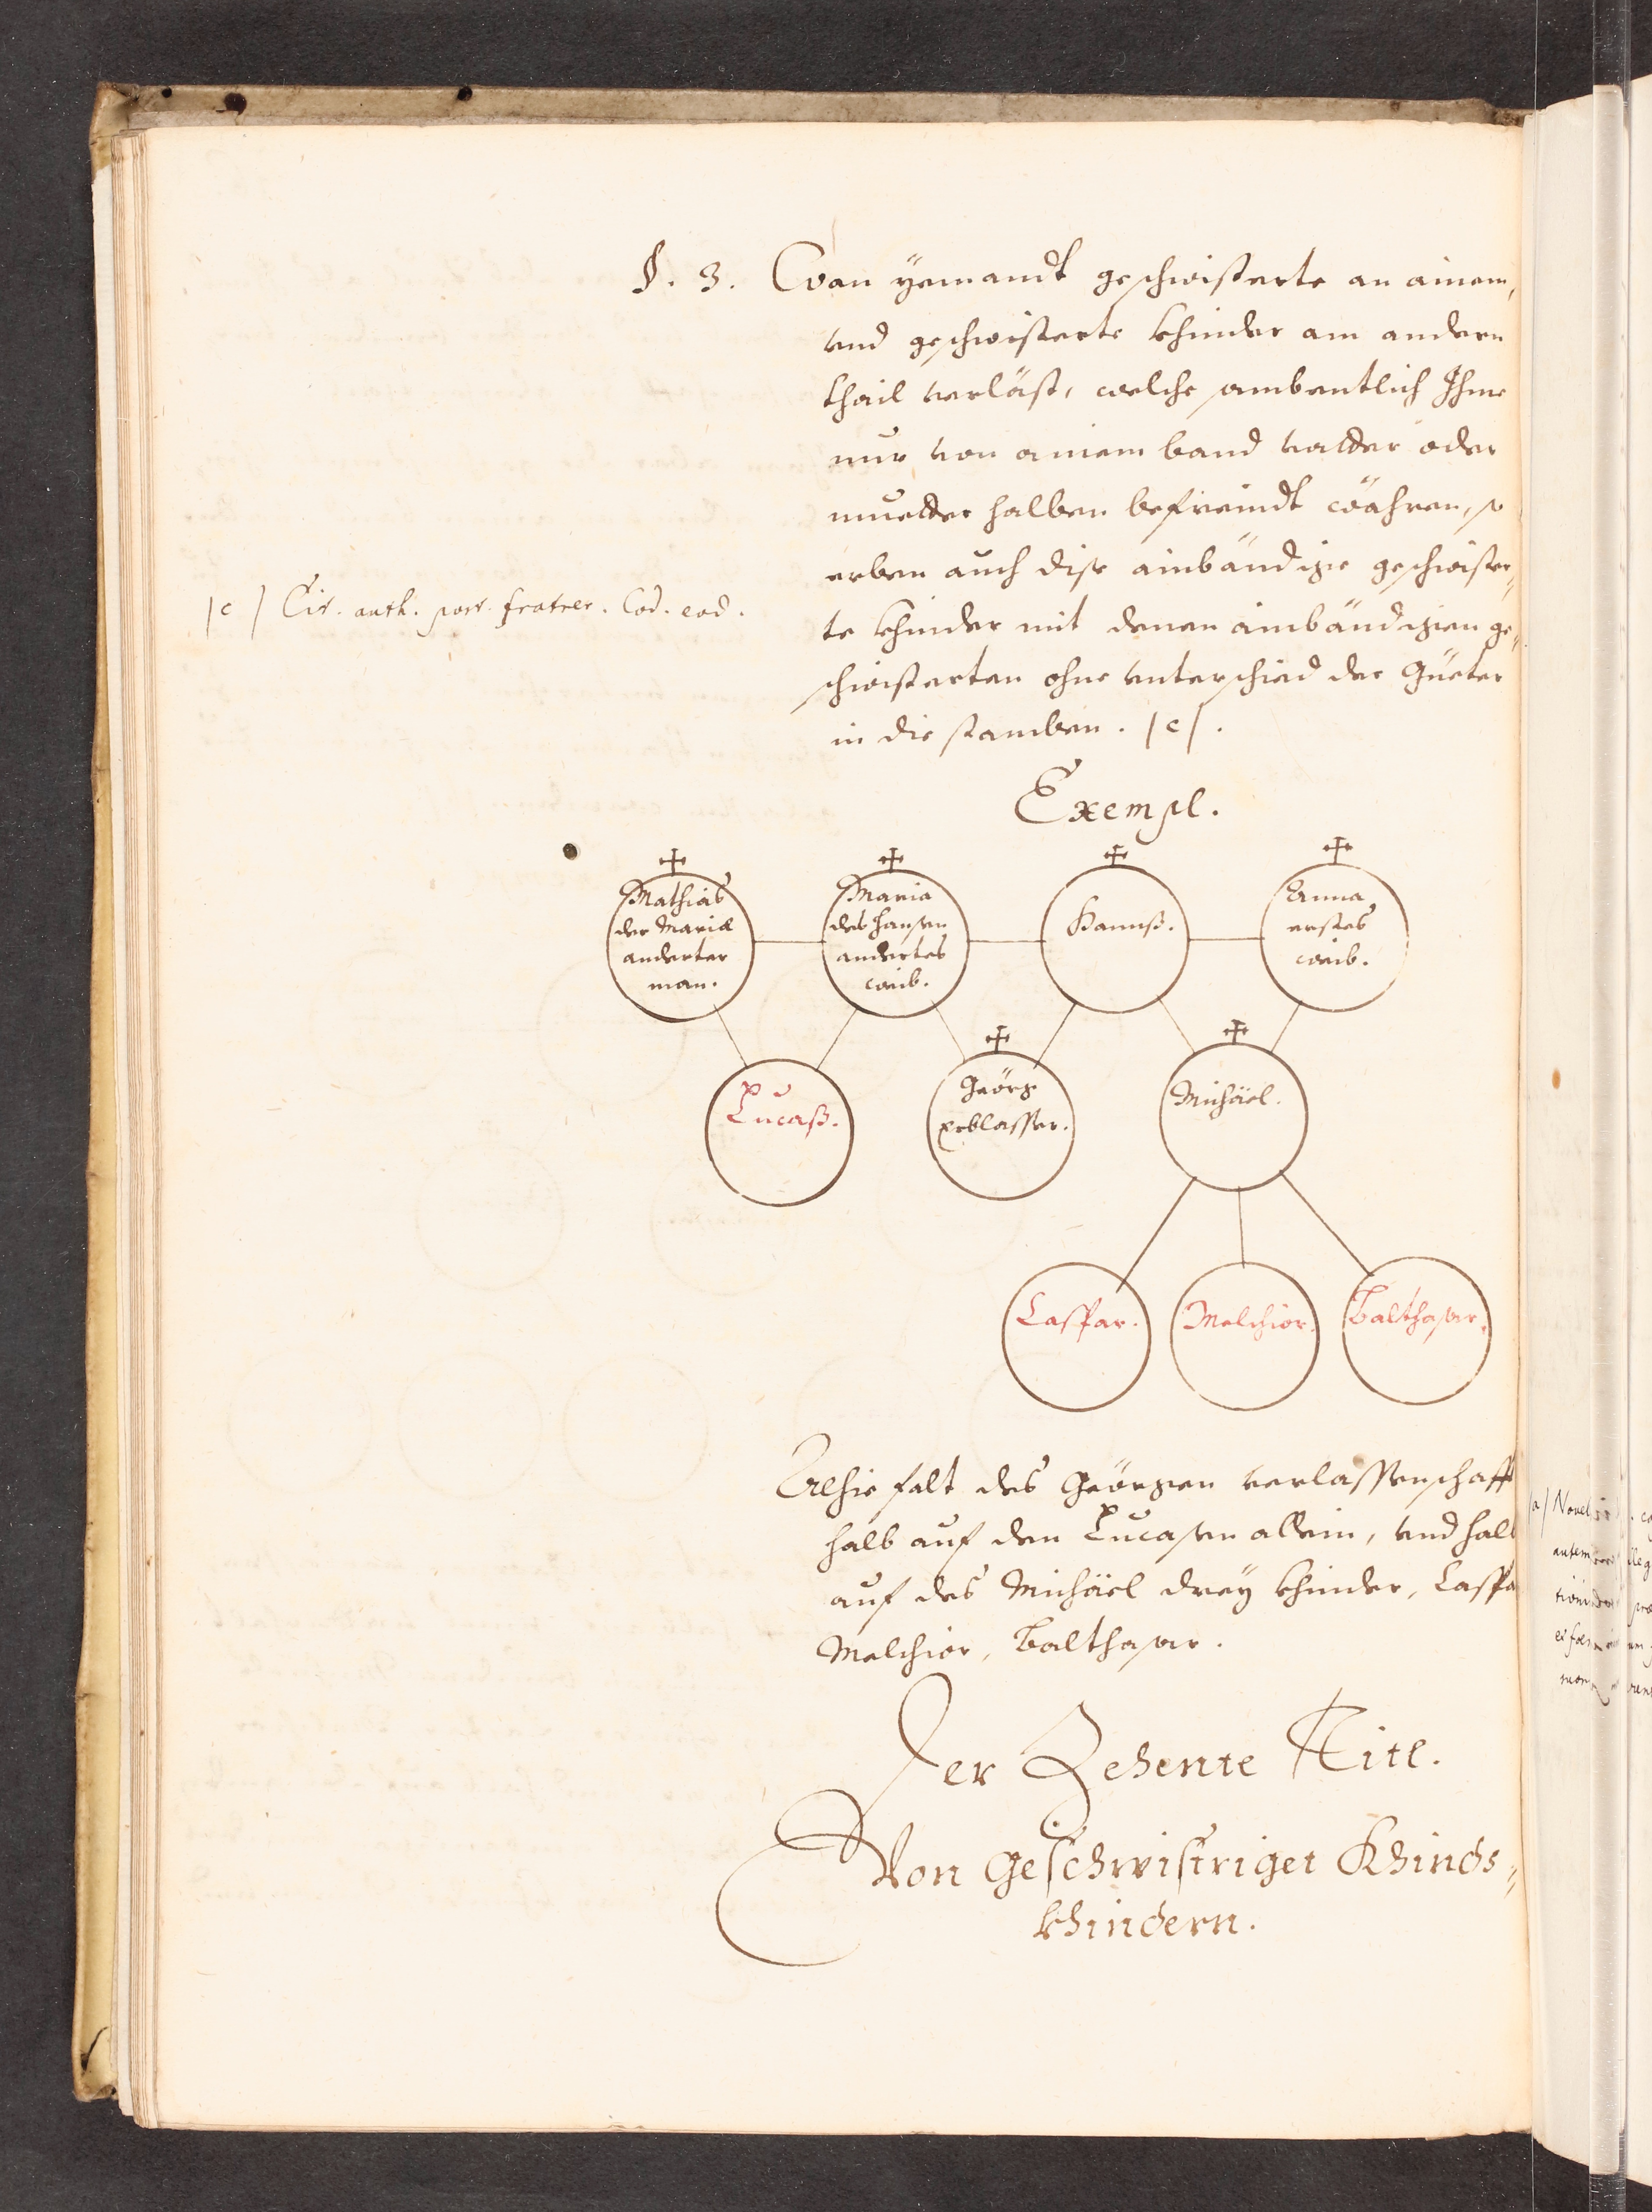 §. 3. Wan yemandt geschwisterte an ainem,
vnd geschwisterte khinder am andern
thail verläst, welche sambentlich Ihme
nur von ainem band vatter oder
muetter halben befreindt währen, so
erben auch dise ainbändige geschwister„
/c/ Cit. auth. post fratres. Cod. eod.
te khinder mit denen ainbändigen ge„
schwisterten ohne vnterschied der Güeter
in die stamben. /c/.
Exempl.
Mathias
der Mariæ
anderter
man.
Maria
des Hansen
andertes
weib.
Hannß.
Anna
erstes
weib.
Lucaß.
Geörg
erblasser.
Michäel.
Casspar.
Melchior.
Balthasar.
Alhie falt des Geörgen verlassenschafft
halb auf den Lucasen allein, vnd halb
auf des Michäel drey khinder, Casspa
Melchior, Balthasar.
Der Zehente Titl.
Von Geschwistriget Khinds„
khindern.
/a/ Novel
autem